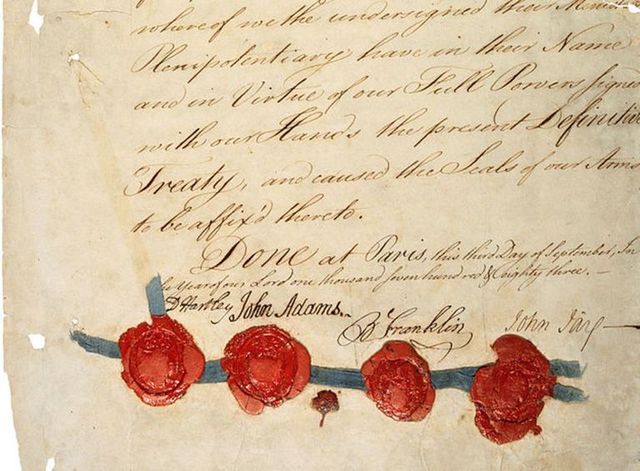 whereof we the undersigned their
Plenipotentiary have in their Name
and in Virtue of our Full Powers signed
with our Hands the present Definitive
Treaty, and caused the Seals of our Arms
to be affix'd thereto.
Done at Paris, this third Day of September, In
Year of our Lord one thousand seven hundred & eighty three. —
D Hartley John Adams. B Franklin John Jay —